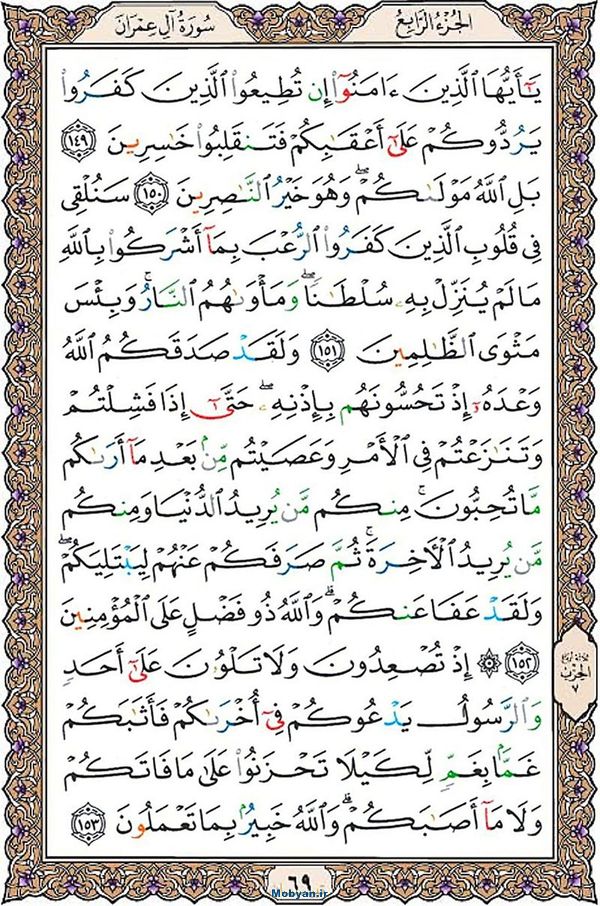 الجُزْءُ الرَّابِعُ سُورَةُ آلِ عِمْرَانَ
يَٰٓأَيُّهَا ٱلَّذِينَ ءَامَنُوٓا۟ إِن تُطِيعُوا۟ ٱلَّذِينَ كَفَرُوا۟
يَرُدُّوكُمْ عَلَىٰٓ أَعْقَٰبِكُمْ فَتَنقَلِبُوا۟ خَٰسِرِينَ ١٤٩
بَلِ ٱللَّهُ مَوْلَىٰكُمْ ۖ وَهُوَ خَيْرُ ٱلنَّٰصِرِينَ ١٥٠ سَنُلْقِى
فِى قُلُوبِ ٱلَّذِينَ كَفَرُوا۟ ٱلرُّعْبَ بِمَآ أَشْرَكُوا۟ بِٱللَّهِ
مَا لَمْ يُنَزِّلْ بِهِۦ سُلْطَٰنًا ۖ وَمَأْوَىٰهُمُ ٱلنَّارُ ۚ وَبِئْسَ
مَثْوَى ٱلظَّٰلِمِينَ ١٥١ وَلَقَدْ صَدَقَكُمُ ٱللَّهُ
وَعْدَهُۥٓ إِذْ تَحُسُّونَهُم بِإِذْنِهِۦ ۖ حَتَّىٰٓ إِذَا فَشِلْتُمْ
وَتَنَٰزَعْتُمْ فِى ٱلْأَمْرِ وَعَصَيْتُم مِّنۢ بَعْدِ مَآ أَرَىٰكُم
مَّا تُحِبُّونَ ۚ مِنكُم مَّن يُرِيدُ ٱلدُّنْيَا وَمِنكُم
مَّن يُرِيدُ ٱلْءَاخِرَةَ ۚ ثُمَّ صَرَفَكُمْ عَنْهُمْ لِيَبْتَلِيَكُمْ ۖ
وَلَقَدْ عَفَا عَنكُمْ ۗ وَٱللَّهُ ذُو فَضْلٍ عَلَى ٱلْمُؤْمِنِينَ
١٥٢ ۞ إِذْ تُصْعِدُونَ وَلَا تَلْوُۥنَ عَلَىٰٓ أَحَدٍ
وَٱلرَّسُولُ يَدْعُوكُمْ فِىٓ أُخْرَىٰكُمْ فَأَثَٰبَكُمْ
غَمًّۢا بِغَمٍّ لِّكَيْلَا تَحْزَنُوا۟ عَلَىٰ مَا فَاتَكُمْ
وَلَا مَآ أَصَٰبَكُمْ ۗ وَٱللَّهُ خَبِيرٌۢ بِمَا تَعْمَلُونَ ١٥٣
ثلاثة أرباع
الحزب
٧
٦٩
Mobyan.ir